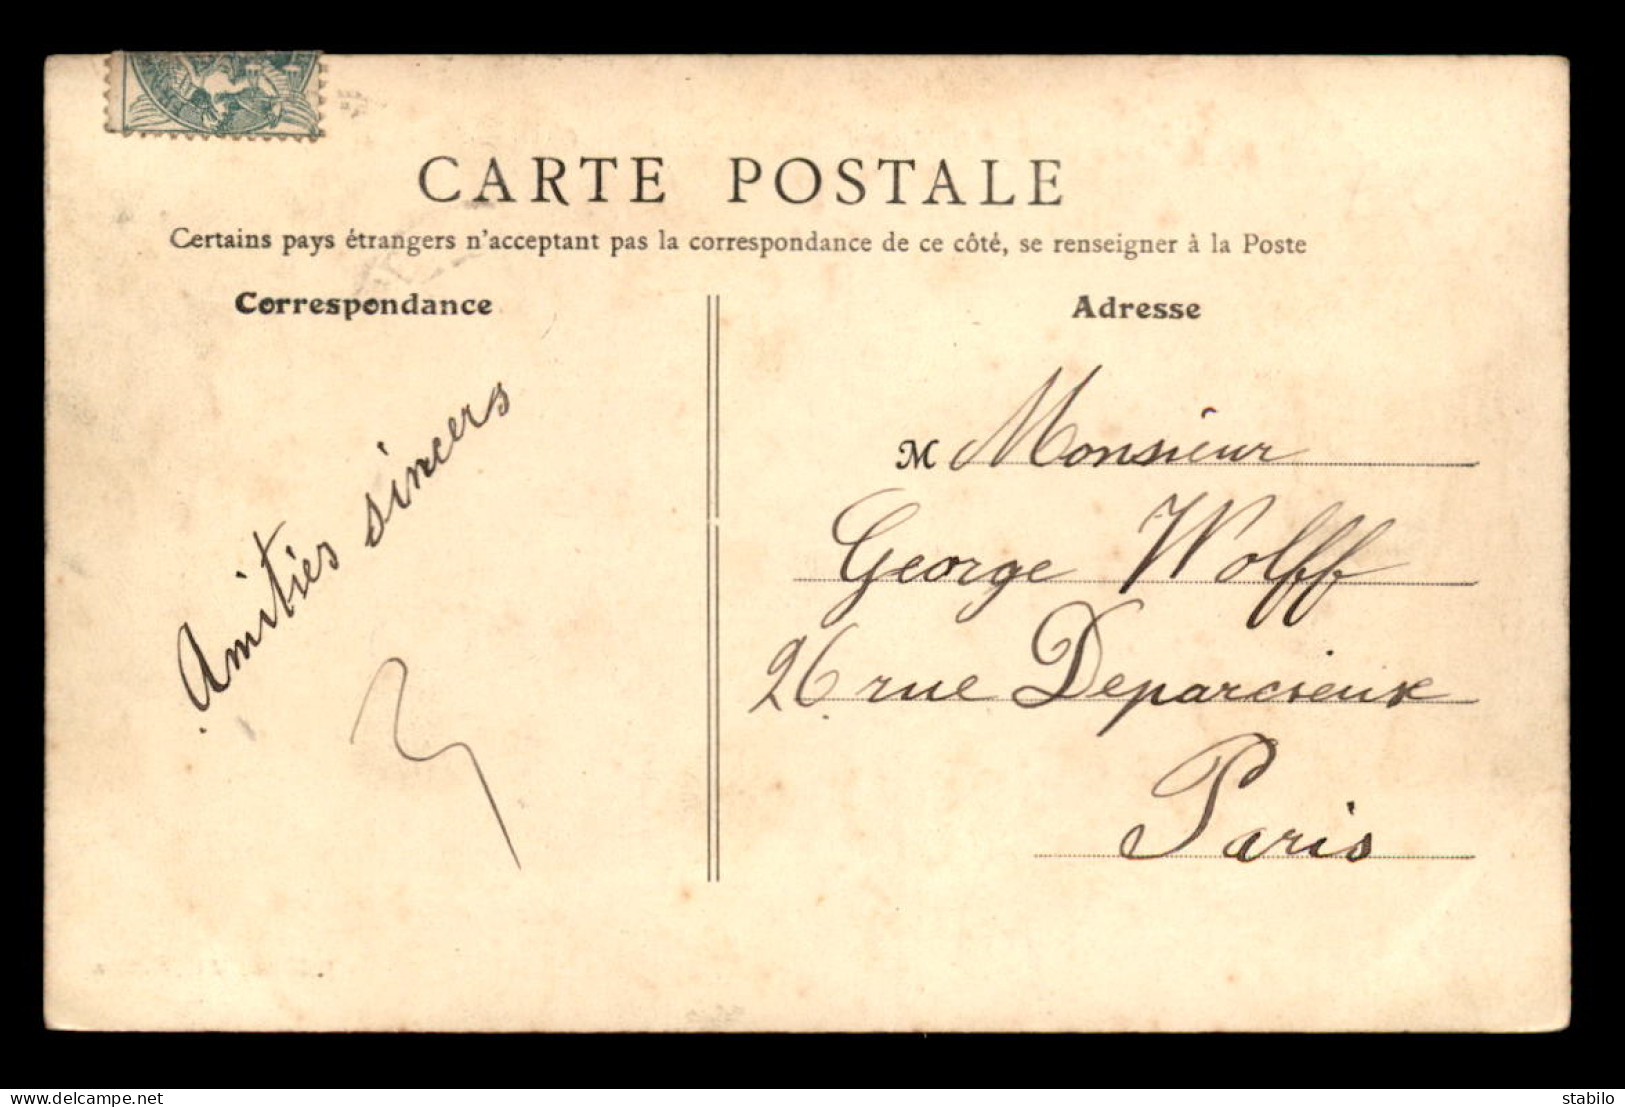 CARTE POSTALE
Certains pays étrangers n'acceptant pas la correspondance de ce côté, se renseigner à la Poste
Correspondance
Adresse
Amitiés sincers
M Monsieur
George Wolff
26 rue Deparcieux
Paris
https://www.delcampe.net
stabilo